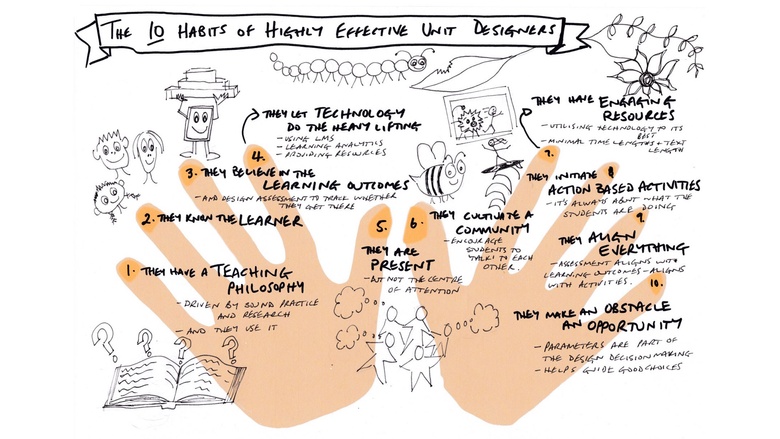 THE 10 HABITS OF HIGHLY EFFECTIVE UNIT DESIGNERS
1. THEY HAVE A TEACHING
PHILOSOPHY
- DRIVEN BY SOUND PRACTICE
AND RESEARCH
- AND THEY USE IT
2. THEY KNOW THE LEARNER
3. THEY BELIEVE IN THE
LEARNING OUTCOMES
- AND DESIGN ASSESSMENT TO TRACK WHETHER
THEY GET THERE
4.
THEY LET TECHNOLOGY
DO THE HEAVY LIFTING
- USING LMS
- LEARNING ANALYTICS
- PROVIDING RESOURCES
5.
THEY ARE
PRESENT
- BUT NOT THE CENTRE
OF ATTENTION
6.
THEY CULTIVATE A
COMMUNITY
- ENCOURAGE
STUDENTS TO
TALK TO EACH
OTHER.
7.
THEY HAVE ENGAGING
RESOURCES
- UTILISING TECHNOLOGY TO ITS
BEST
- MINIMAL TIME LENGTHS + TEXT
LENGTH
8
THEY INITIATE
ACTION BASED ACTIVITIES
- IT'S ALWAYS ABOUT WHAT THE
STUDENTS ARE DOING
9.
THEY ALIGN
EVERYTHING
- ASSESSMENT ALIGNS WITH
LEARNING OUTCOMES - ALIGNS
WITH ACTIVITIES.
10.
THEY MAKE AN OBSTACLE
AN OPPORTUNITY
- PARAMETERS ARE PART
OF THE DESIGN DECISION MAKING
- HELPS GUIDE GOOD CHOICES
? ? ? ?